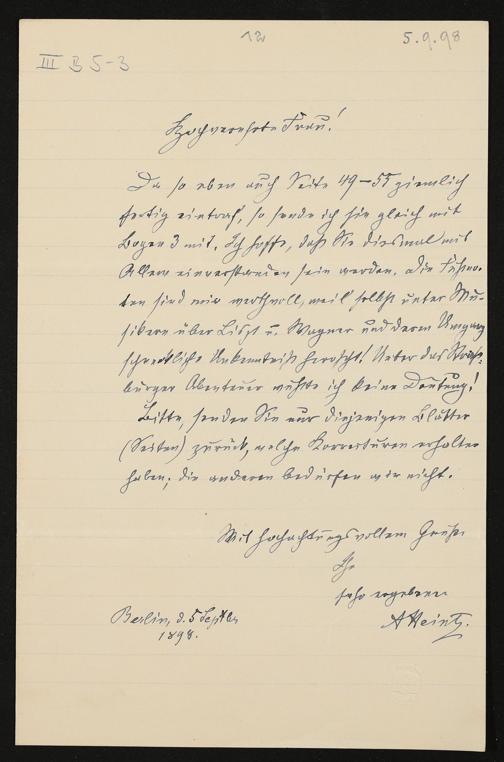 12
5.9.98
III B 5-3
Hochverehrte Frau!
Da so eben auch Seite 49–55 ziemlich
fertig eintraf, so sende ich sie gleich mit
Bogen 3 mit. Ich hoffe, daß Sie diesmal mit
Allem einverstanden sein werden. Die Fußno-
ten sind mir werthvoll, weil selbst unter Mu-
sikern über Liszt u. Wagner und deren Umgang
schreckliche Unkenntniß herrscht! Ueber das Straß-
burger Abenteuer wußte ich keine Deutung!
Bitte, senden Sie nur diejenigen Blätter
(Seiten) zurück, welche Korrekturen erhalten
haben; die anderen bedürfen wir nicht.
Mit hochachtungsvollem Gruße
Ihr
sehr ergebener
A Heintz.
Berlin, d. 5 Septbr
1898.